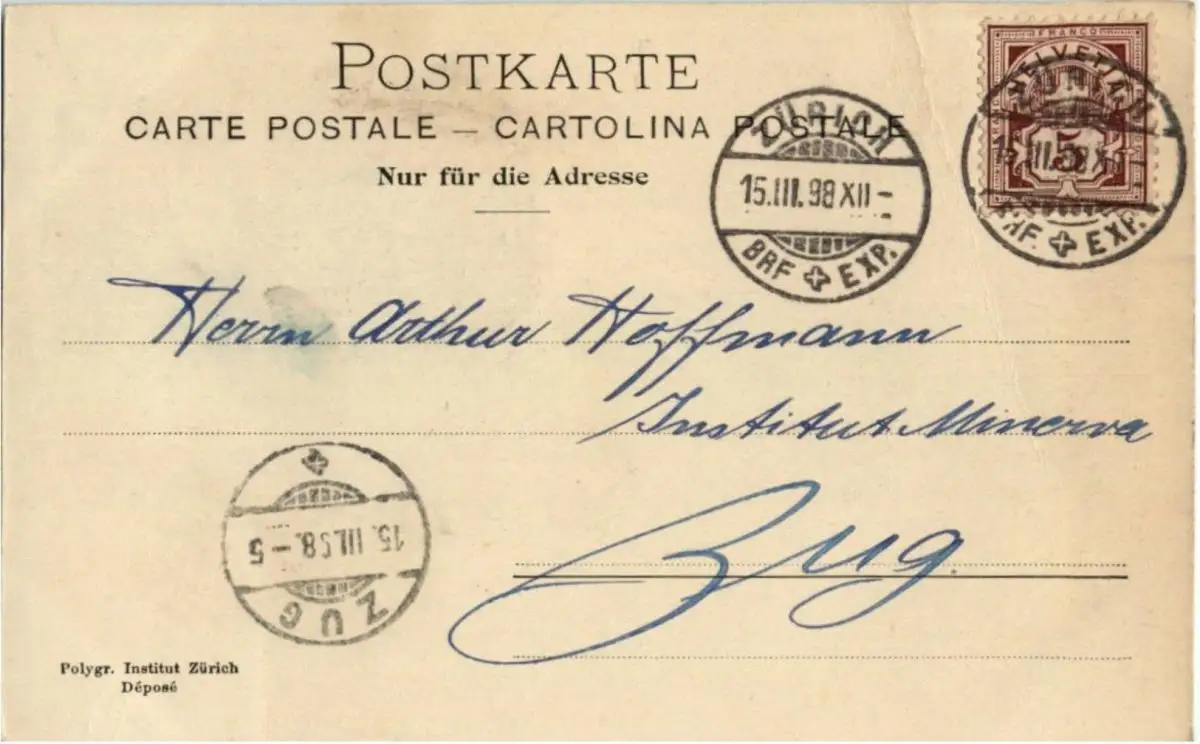 POSTKARTE
CARTE POSTALE — CARTOLINA POSTALE
Nur für die Adresse
FRANCO
HELVETIA
5
ZÜRICH
15.III.98 XII –
BRF + EXP.
BRF. + EXP.
Herrn Arthur Hoffmann
Institut Minerva
Zug.
15. III. 98. – 5
ZUG
Polygr. Institut Zürich
Déposé